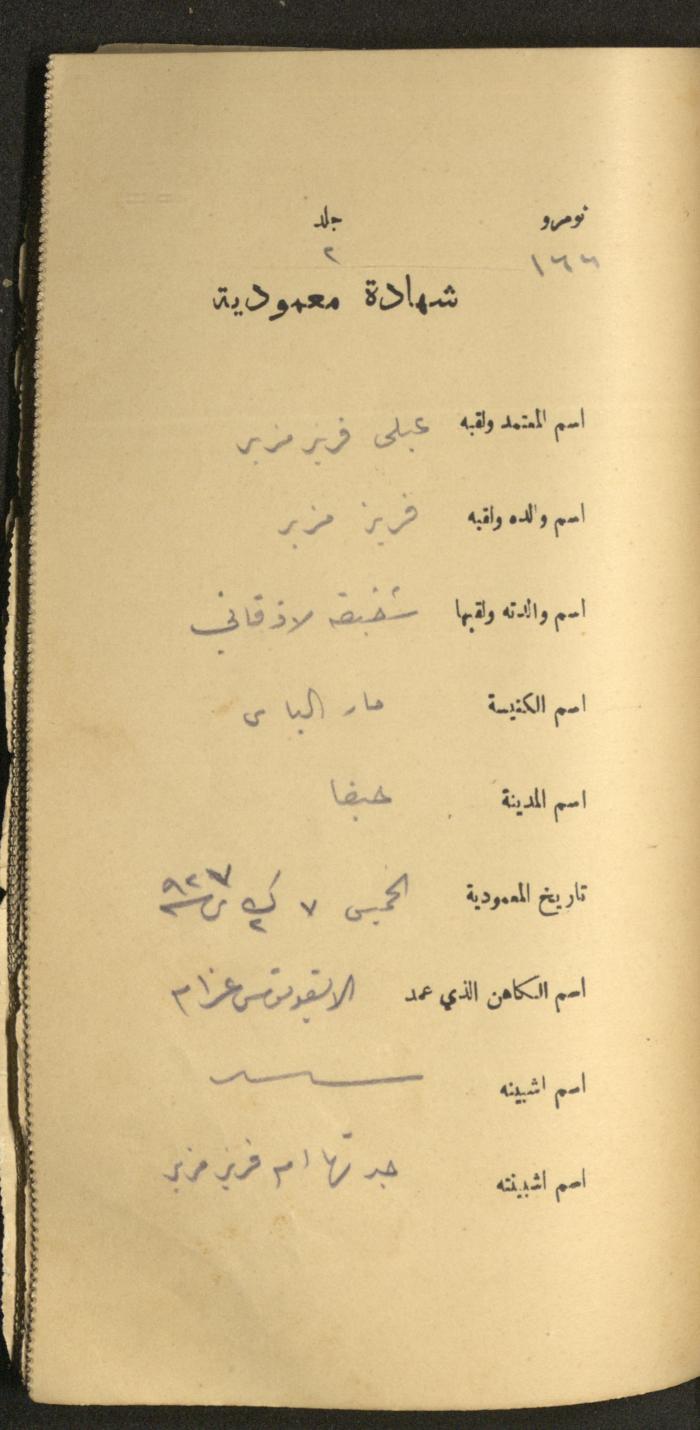 نومرو جلد
١٦٦ ٢
شهادة معمودية
اسم المعتمد ولقبه عبلى فريز مزبر
اسم والده ولقبه فريز مزبر
اسم والدته ولقبها شفيقه لاذقاني
اسم الكنيسة مار الياس
اسم المدينة حيفا
تاريخ المعمودية الخميس ٧ ك ٢ سنة ٩٢٧
اسم الكاهن الذي عمد الايقونومس عزام
اسم اشبينه
اسم اشبينته جدتها ام فريز مزبر